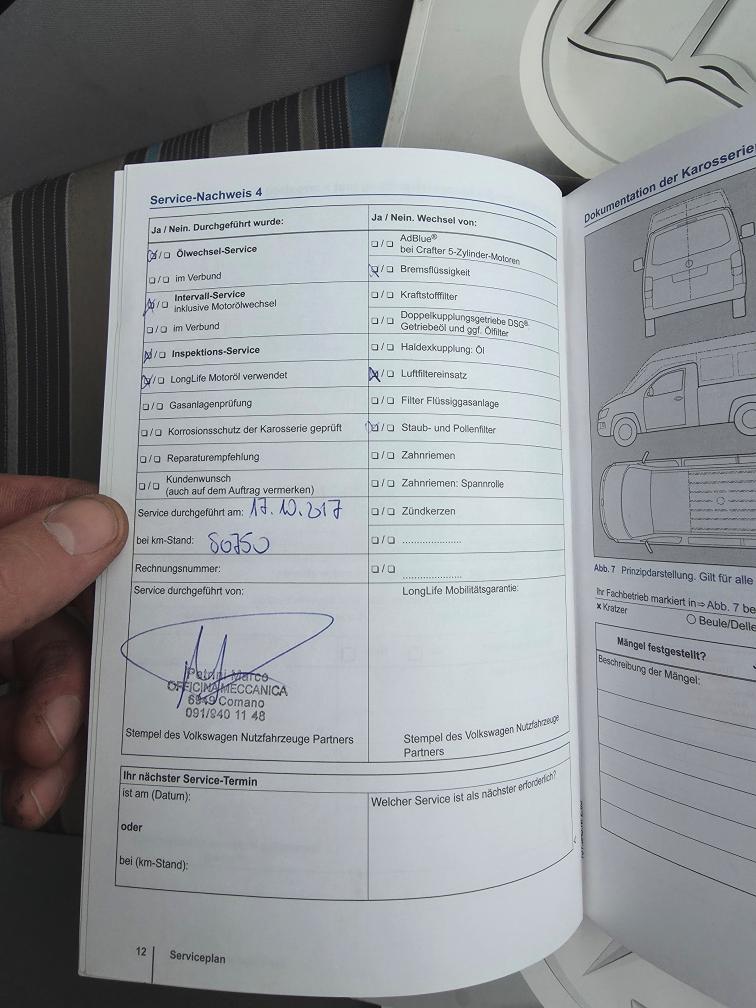 Service-Nachweis 4
Ja / Nein. Durchgeführt wurde:
❑ / ❑ Ölwechsel-Service
❑ / ❑ im Verbund
❑ / ❑ Intervall-Service
inklusive Motorölwechsel
❑ / ❑ im Verbund
❑ / ❑ Inspektions-Service
❑ / ❑ LongLife Motoröl verwendet
❑ / ❑ Gasanlagenprüfung
❑ / ❑ Korrosionsschutz der Karosserie geprüft
❑ / ❑ Reparaturempfehlung
❑ / ❑ Kundenwunsch
(auch auf dem Auftrag vermerken)
Service durchgeführt am: 17.10.2017
bei km-Stand: 80750
Rechnungsnummer:
Service durchgeführt von:
Petrini Marco
OFFICINA MECCANICA
6949 Comano
091/940 11 48
Stempel des Volkswagen Nutzfahrzeuge Partners
Ja / Nein. Wechsel von:
❑ / ❑ AdBlue®
bei Crafter 5-Zylinder-Motoren
❑ / ❑ Bremsflüssigkeit
❑ / ❑ Kraftstofffilter
❑ / ❑ Doppelkupplungsgetriebe DSG®:
Getriebeöl und ggf. Ölfilter
❑ / ❑ Haldexkupplung: Öl
❑ / ❑ Luftfiltereinsatz
❑ / ❑ Filter Flüssiggasanlage
❑ / ❑ Staub- und Pollenfilter
❑ / ❑ Zahnriemen
❑ / ❑ Zahnriemen: Spannrolle
❑ / ❑ Zündkerzen
❑ / ❑ .....................
❑ / ❑ .....................
LongLife Mobilitätsgarantie:
Stempel des Volkswagen Nutzfahrzeuge
Partners
Ihr nächster Service-Termin
ist am (Datum):
oder
bei (km-Stand):
Welcher Service ist als nächster erforderlich?
12 Serviceplan
Dokumentation der Karosserie
Abb. 7 Prinzipdarstellung. Gilt für alle
Ihr Fachbetrieb markiert in⇒ Abb. 7 be
x Kratzer
○ Beule/Delle
Mängel festgestellt?
Beschreibung der Mängel: